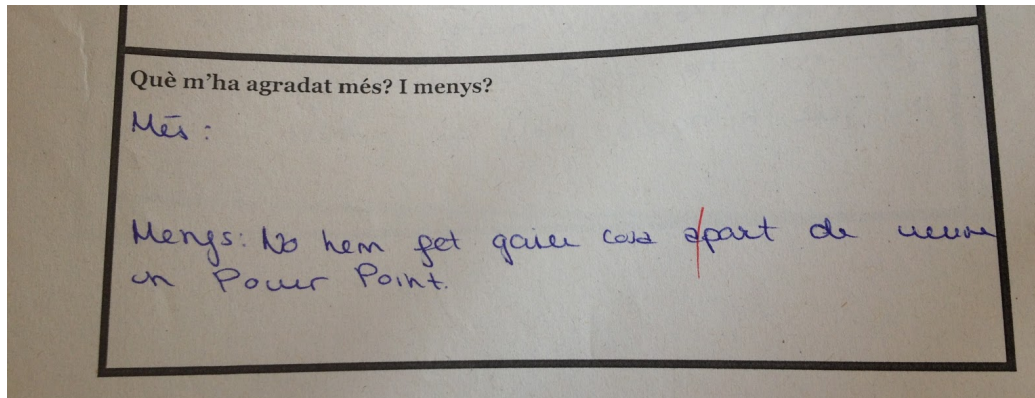 Què m'ha agradat més? I menys?
Més:
Menys: No hem fet gaire cosa apart de veure
un Power Point.